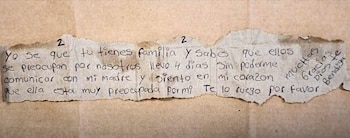 2 2
Yo se que tu tienes familia y sabes que ellos
se preocupan por nosotros llevo 4 dias sin poderme
comunicar con mi madre y siento en mi corazon
que ella esta muy preocupada por mi Te lo ruego por favor
muchas
Gracias
Dios te
Bendiga